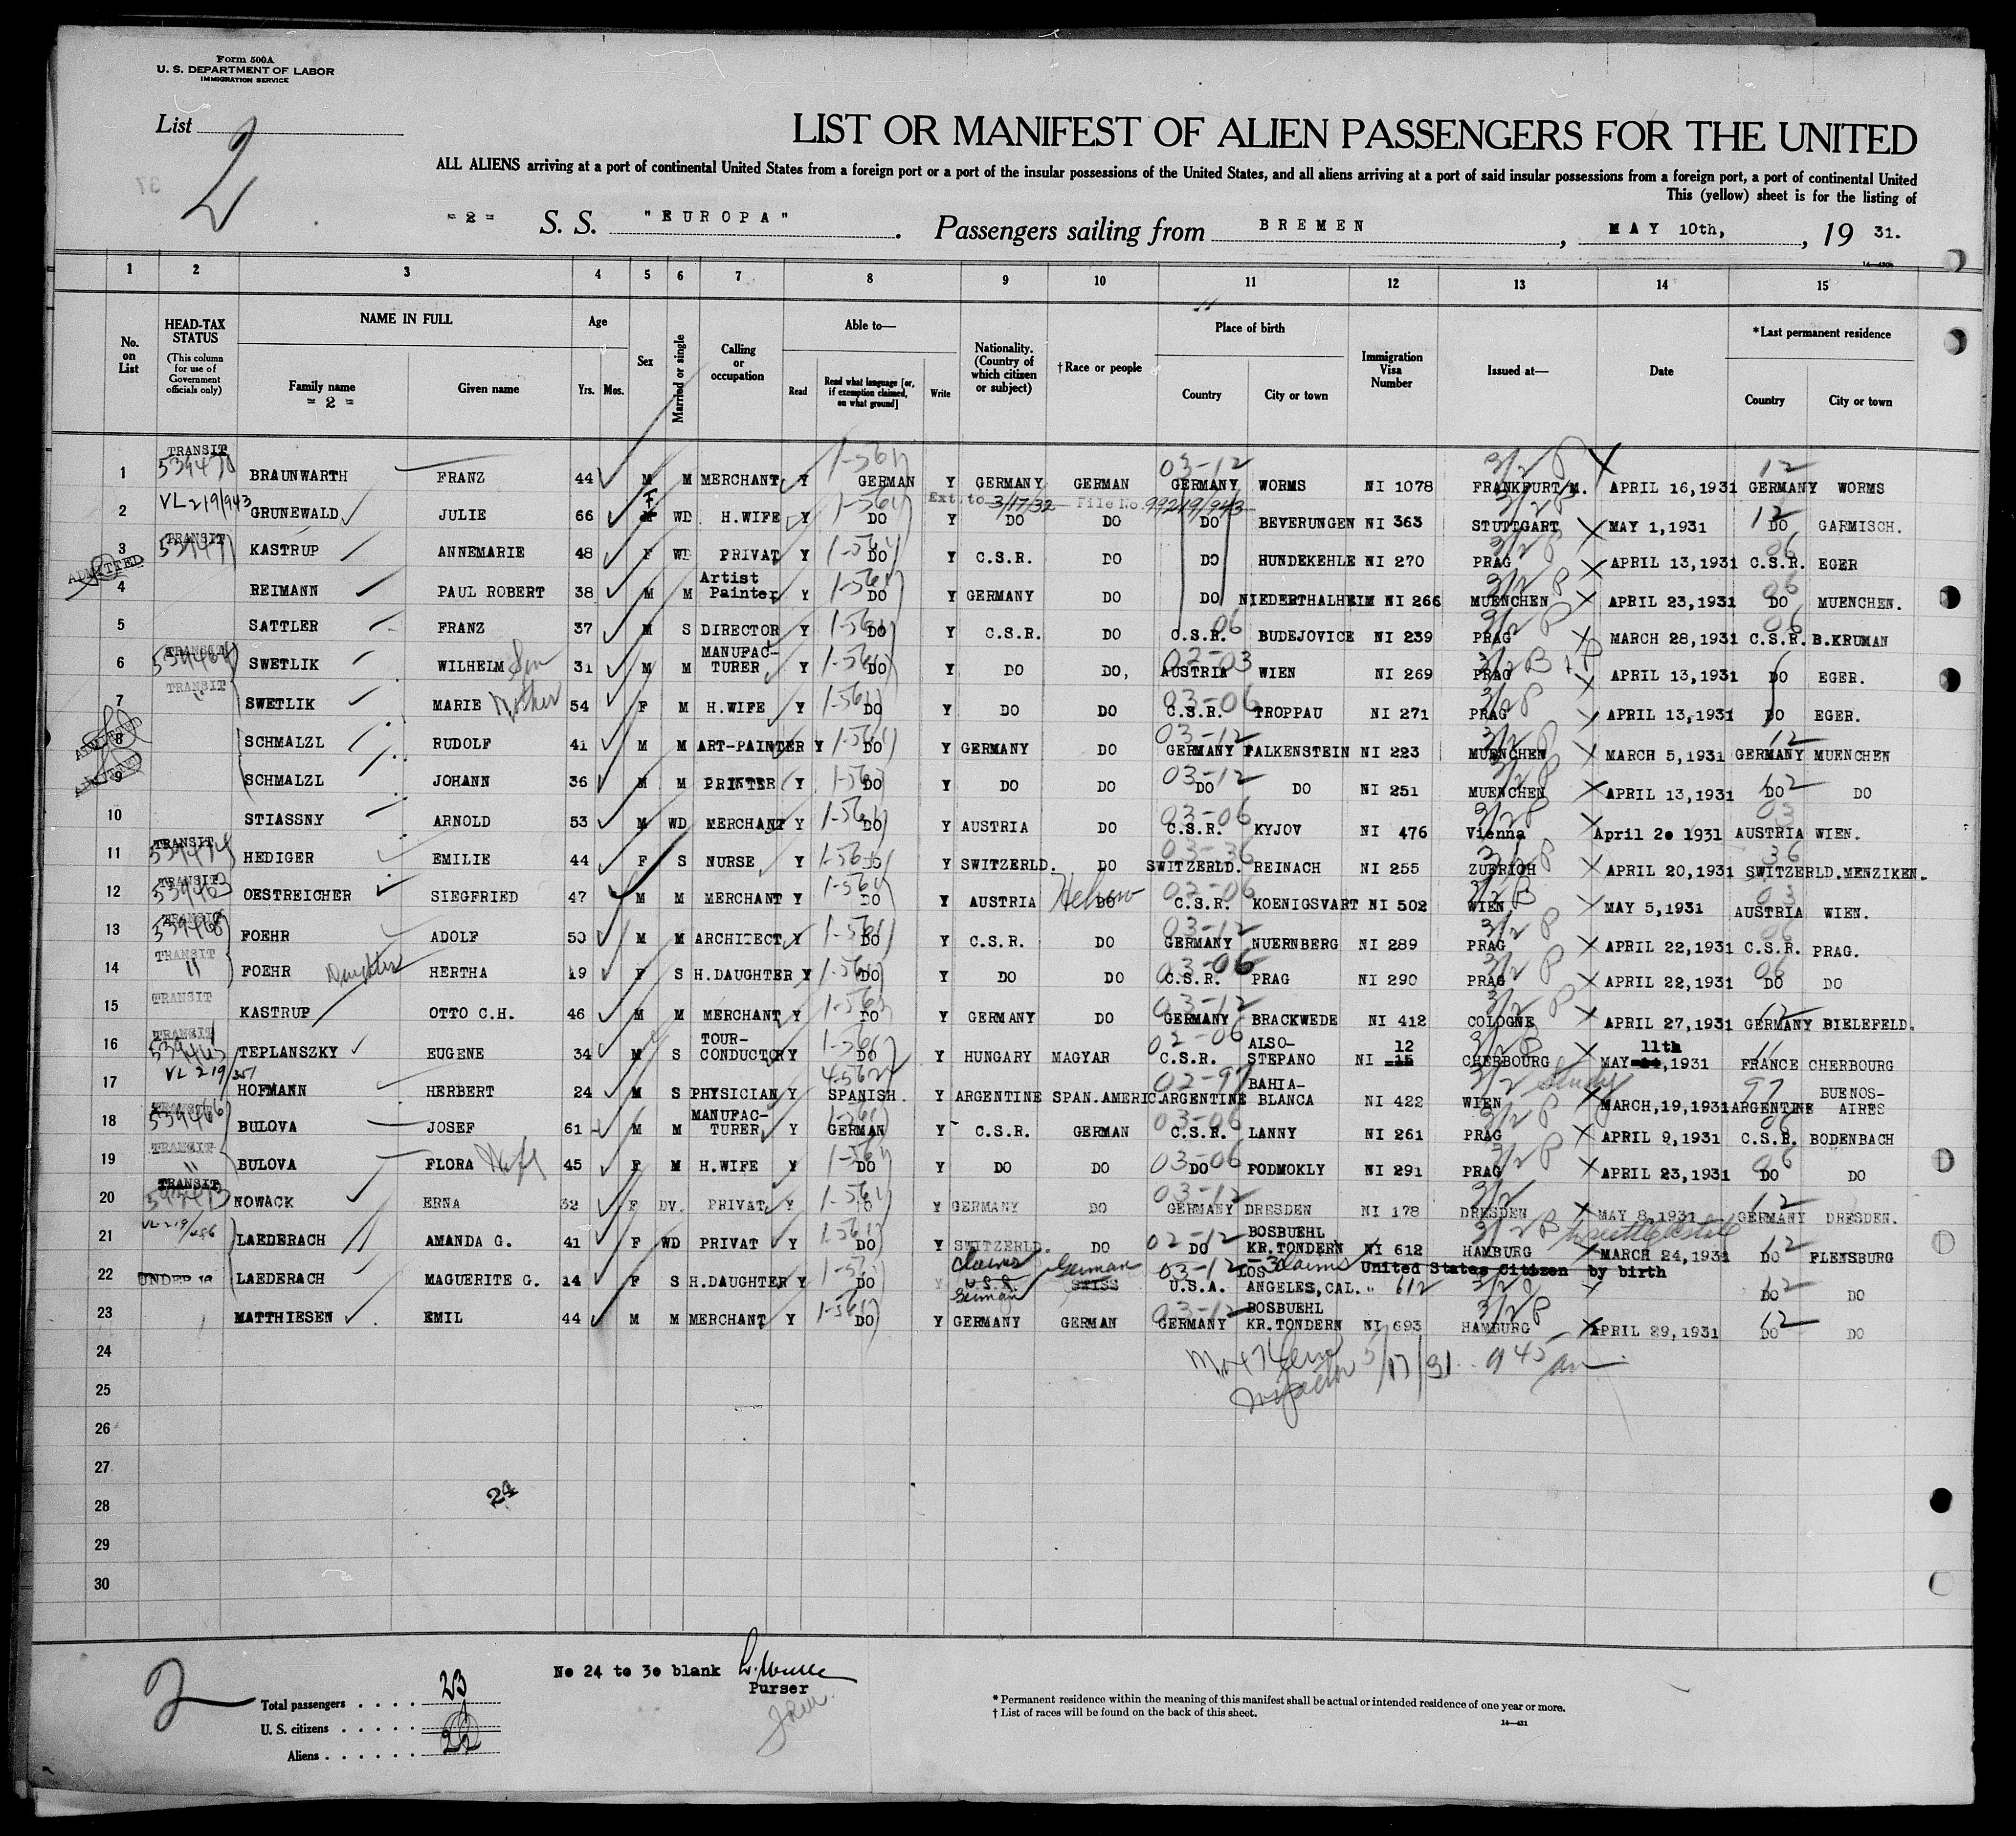 Form 500A
U. S. DEPARTMENT OF LABOR
IMMIGRATION SERVICE
List 2
LIST OR MANIFEST OF ALIEN PASSENGERS FOR THE UNITED
ALL ALIENS arriving at a port of continental United States from a foreign port or a port of the insular possessions of the United States, and all aliens arriving at a port of said insular possessions from a foreign port, a port of continental United
This (yellow) sheet is for the listing of
= 2 = S. S. "EUROPA". Passengers sailing from BREMEN, MAY 10th, 19 31.
1 2 3 4 5 6 7 8 9 10 11 12 13 14 15
No. on List
HEAD-TAX STATUS (This column for use of Government officials only)
NAME IN FULL
Family name = 2 =
Given name
Age
Yrs. Mos.
Sex
Married or single
Calling or occupation
Able to—
Read
Read what language [or, if exemption claimed, on what ground]
Write
Nationality. (Country of which citizen or subject)
†Race or people
Place of birth
Country
City or town
Immigration Visa Number
Issued at—
Date
*Last permanent residence
Country
City or town
1 TRANSIT BRAUNWARTH FRANZ 44 M M MERCHANT Y GERMAN Y GERMANY GERMAN 03-12 GERMANY WORMS NI 1078 3/2 P FRANKFURT/M. APRIL 16,1931 12 GERMANY WORMS
Ext. to 3/17/32 File No. 99219/943
2 VL 219/943 GRUNEWALD JULIE 66 F WD H.WIFE Y DO Y DO DO DO BEVERUNGEN NI 363 STUTTGART MAY 1,1931 12 DO GARMISCH.
3 TRANSIT 539471 KASTRUP ANNEMARIE 48 F WD PRIVAT Y DO Y C.S.R. DO DO HUNDEKEHLE NI 270 PRAG APRIL 13,1931 06 C.S.R. EGER
ADMITTED
4 REIMANN PAUL ROBERT 38 M M Artist Painter Y DO Y GERMANY DO DO NIEDERTHALHEIM NI 266 MUENCHEN APRIL 23,1931 DO MUENCHEN.
5 SATTLER FRANZ 37 M S DIRECTOR Y DO Y C.S.R. DO 06 C.S.R. BUDEJOVICE NI 239 PRAG MARCH 28,1931 06 C.S.R. B.KRUMAN
6 TRANSIT SWETLIK WILHELM Son 31 M M MANUFAC-TURER Y DO Y DO DO, 02-03 AUSTRIA WIEN NI 269 PRAG APRIL 13,1931 DO EGER.
7 TRANSIT SWETLIK MARIE Mother 54 F M H.WIFE Y DO Y DO DO 03-06 C.S.R. TROPPAU NI 271 PRAG APRIL 13,1931 DO EGER.
8 ADMITTED SCHMALZL RUDOLF 41 M M ART-PAINTER Y DO Y GERMANY DO 03-12 GERMANY FALKENSTEIN NI 223 MUENCHEN MARCH 5,1931 12 GERMANY MUENCHEN
9 ADMITTED SCHMALZL JOHANN 36 M M PRINTER Y DO Y DO DO 03-12 DO DO NI 251 MUENCHEN APRIL 13,1931 DO DO
10 STIASSNY ARNOLD 53 M WD MERCHANT Y DO Y AUSTRIA DO 03-06 C.S.R. KYJOV NI 476 Vienna April 2o 1931 03 AUSTRIA WIEN.
11 TRANSIT HEDIGER EMILIE 44 F S NURSE Y DO Y SWITZERLD. DO 03-36 SWITZERLD. REINACH NI 255 ZUERICH APRIL 20,1931 36 SWITZERLD. MENZIKEN.
12 TRANSIT 539463 OESTREICHER SIEGFRIED 47 M M MERCHANT Y DO Y AUSTRIA DO Hebrew 02-06 C.S.R. KOENIGSVART NI 502 WIEN, MAY 5,1931 03 AUSTRIA WIEN.
13 TRANSIT 539468 FOEHR ADOLF 50 M M ARCHITECT Y DO Y C.S.R. DO 03-12 GERMANY NUERNBERG NI 289 PRAG APRIL 22,1931 06 C.S.R. PRAG.
14 TRANSIT " FOEHR Daughter HERTHA 19 F S H.DAUGHTER Y DO Y DO DO 03-06 C.S.R. PRAG NI 290 PRAG APRIL 22,1931 06 DO DO
15 TRANSIT KASTRUP OTTO C.H. 46 M M MERCHANT Y DO Y GERMANY DO 03-12 GERMANY BRACKWEDE NI 412 COLOGNE APRIL 27,1931 12 GERMANY BIELEFELD.
16 TRANSIT TEPLANSZKY EUGENE 34 M S TOUR-CONDUCTOR Y DO Y HUNGARY MAGYAR 02-06 C.S.R. ALSO-STEPANO NI 12 15 CHERBOURG MAY 11th,1931 11 FRANCE CHERBOURG
17 VL 219/351 HOFMANN HERBERT 24 M S PHYSICIAN Y SPANISH. Y ARGENTINE SPAN.AMERIC. 02-97 ARGENTINE BAHIA-BLANCA NI 422 3/2 Study WIEN MARCH,19,1931 97 ARGENTINE BUENOS-AIRES
18 TRANSIT 539466 BULOVA JOSEF 61 M M MANUFAC-TURER Y GERMAN Y C.S.R. GERMAN 03-06 C.S.R. LANNY NI 261 PRAG APRIL 9,1931 06 C.S.R. BODENBACH
19 TRANSIT " BULOVA FLORA Wife 45 F M H.WIFE Y DO Y DO DO 03-06 DO PODMOKLY NI 291 PRAG APRIL 23,1931 06 DO DO
20 TRANSIT NOWACK ERNA 32 F DV. PRIVAT Y DO Y GERMANY DO 03-12 GERMANY DRESDEN NI 178 3/2 DRESDEN MAY 8,1931 12 GERMANY DRESDEN.
21 VL 219/486 LAEDERACH AMANDA G. 41 F WD PRIVAT Y DO Y SWITZERLD. DO 02-12 DO BOSBUEHL KR.TONDERN NI 612 3/2 B to settle Estate HAMBURG MARCH 24,1931 12 DO FLENSBURG
22 UNDER 16 LAEDERACH MAGUERITE G. 14 F S H.DAUGHTER Y DO Y Claims U.S.A. German German SWISS 03-12 U.S.A. LOS ANGELES,CAL. Claims United States Citizen by birth " 612 3/2 DO DO
23 MATTHIESEN EMIL 44 M M MERCHANT Y DO Y GERMANY GERMAN 03-12 GERMANY BOSBUEHL KR.TONDERN NI 693 3/2 P HAMBURG APRIL 29,1931 12 DO DO
24
5/17/31 9 45 am
25
Inspector
26
27
28
24
29
30
2
No 24 to 3o blank
Purser
Total passengers . . . . 23
U. S. citizens . . . . . 1
Aliens . . . . . . 22
* Permanent residence within the meaning of this manifest shall be actual or intended residence of one year or more.
† List of races will be found on the back of this sheet.
14—431